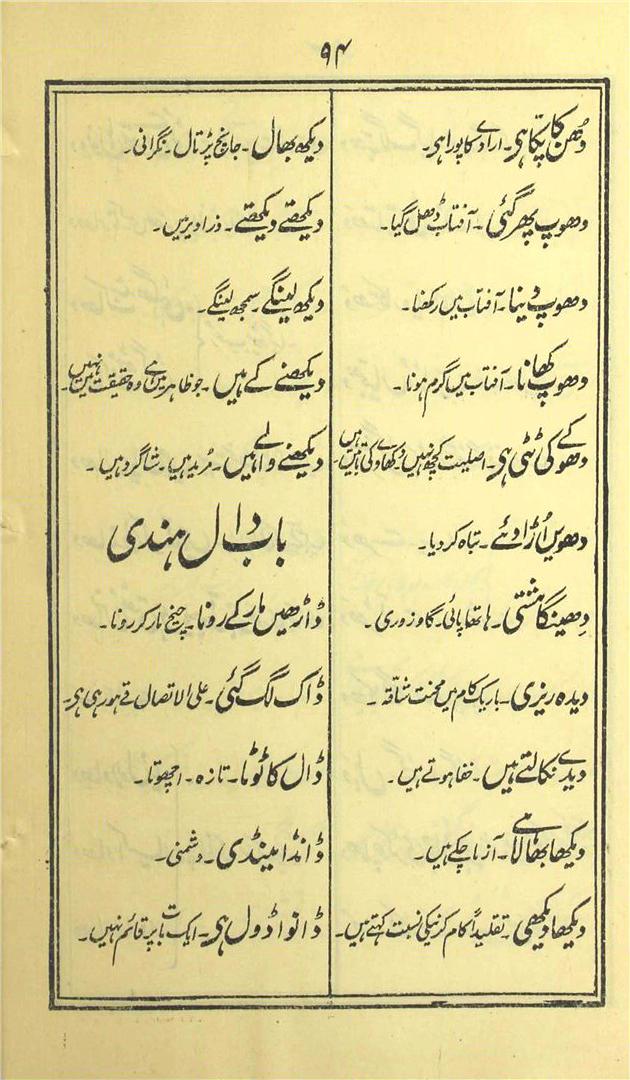 ۹۴
دُھن کا پکّا ہی۔ ارادے کا پورا ہی۔
دھوپ پھر گئی۔ آفتاب ڈھل گیا۔
دھوپ دینا۔ آفتاب میں رکھنا۔
دھوپ کھانا۔ آفتاب میں گرم ہونا۔
دھوکے کی ٹٹی ہی۔ اصلیت کچھ نہیں۔ دکھاوے کی باتیں ہیں۔
دھویں اُڑا دئے۔ تباہ کر دیا۔
دھینگا مشتی۔ ہاتھا پائی۔ گاو زوری۔
دیدہ ریزی۔ باریک کام میں محنت شاقہ۔
دیدے نکالتے ہیں۔ خفا ہوتے ہیں۔
دیکھا بھالا ہے۔ آزما چکے ہیں۔
دیکھا دیکھی۔ تقلیداً کام کرنیکی نسبت کہتے ہیں۔
دیکھ بھال۔ جانچ پرتال۔ نگرانی۔
دیکھتے دیکھتے۔ ذرا دیر میں۔
دیکھ لینگے۔ سمجھ لینگے۔
دیکھنے کے ہیں۔ جو ظاہر میں ہے وہ حقیقت میں نہیں۔
دیکھنے والے ہیں۔ مُرید ہیں۔ شاگرد ہیں۔
باب دال ہندی
ڈاڑھیں مار کے رونا۔ چیخ مار کر رونا۔
ڈاک لگ گئی۔ علی الاتصال قے ہو رہی ہی۔
ڈال کا ٹوٹا۔ تازہ۔ اچھوتا۔
ڈانڈا مینڈی۔ دشمنی۔
ڈانوا ڈول ہی۔ ایک بات پر قائم نہیں۔